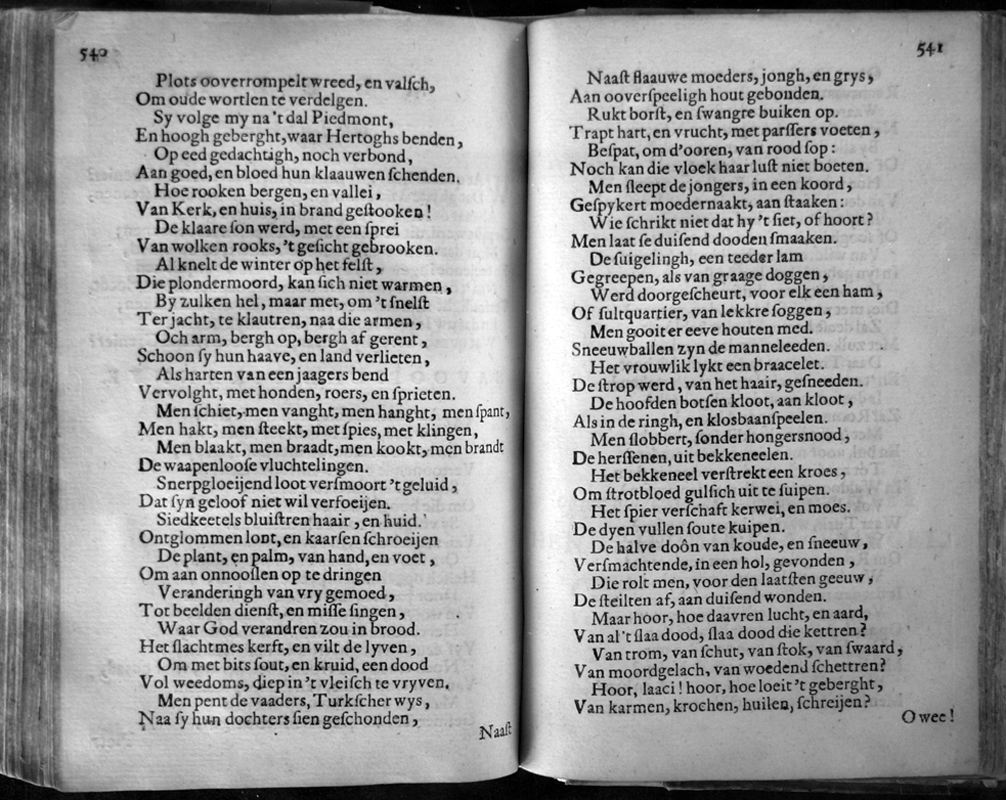 540
Plots ooverrompelt wreed, en valſch,
Om oude wortlen te verdelgen.
Sy volge my na 't dal Piedmont,
En hoogh geberght, waar Hertoghs benden,
Op eed gedachtigh, noch verbond,
Aan goed, en bloed hun klaauwen ſchenden.
Hoe rooken bergen, en vallei,
Van Kerk, en huis, in brand geſtooken!
De klaare ſon werd, met een ſprei
Van wolken rooks, 't geſicht gebrooken.
Al knelt de winter op het felſt,
Die plondermoord, kan ſich niet warmen,
By zulken hel, maar met, om 't ſnelſt
Ter jacht, te klautren, naa die armen,
Och arm, bergh op, bergh af gerent,
Schoon ſy hun haave, en land verlieten,
Als harten van een jaagers bend
Vervolght, met honden, roers, en ſprieten.
Men ſchiet, men vanght, men hanght, men ſpant,
Men hakt, men ſteekt, met ſpies, met klingen,
Men blaakt, men braadt, men kookt, men brandt
De waapenlooſe vluchtelingen.
Snerpgloeijend loot verſmoort 't geluid,
Dat ſyn geloof niet wil verfoeijen.
Siedkeetels bluiſtren haair, en huid.
Ontglommen lont, en kaarſen ſchroeijen
De plant, en palm, van hand, en voet,
Om aan onnooſlen op te dringen
Veranderingh van vry gemoed,
Tot beelden dienſt, en miſſe ſingen,
Waar God verandren zou in brood.
Het ſlachtmes kerft, en vilt de lyven,
Om met bits ſout, en kruid, een dood
Vol weedoms, diep in 't vleiſch te vryven.
Men pent de vaaders, Turkſcher wys,
Naa ſy hun dochters ſien geſchonden,
Naaſt
541
Naaſt flaauwe moeders, jongh, en grys,
Aan ooverſpeeligh hout gebonden.
Rukt borſt, en ſwangre buiken op.
Trapt hart, en vrucht, met parſſers voeten,
Beſpat, om d'ooren, van rood ſop:
Noch kan die vloek haar luſt niet boeten.
Men ſleept de jongers, in een koord,
Geſpykert moedernaakt, aan ſtaaken:
Wie ſchrikt niet dat hy 't ſiet, of hoort?
Men laat ſe duiſend dooden ſmaaken.
De ſuigelingh, een teeder lam
Gegreepen, als van graage doggen,
Werd doorgeſcheurt, voor elk een ham,
Of ſultquartier, van lekkre ſoggen,
Men gooit er eeve houten med.
Sneeuwballen zyn de manneleeden.
Het vrouwlik lykt een braacelet.
De ſtrop werd, van het haair, geſneeden.
De hoofden botſen kloot, aan kloot,
Als in de ringh, en klosbaanſpeelen.
Men ſlobbert, ſonder hongersnood,
De herſſenen, uit bekkeneelen.
Het bekkeneel verſtrekt een kroes,
Om ſtrotbloed gulſich uit te ſuipen.
Het ſpier verſchaft kerwei, en moes.
De dyen vullen ſoute kuipen.
De halve doôn van koude, en ſneeuw,
Verſmachtende, in een hol, gevonden,
Die rolt men, voor den laatſten geeuw,
De ſteilten af, aan duiſend wonden.
Maar hoor, hoe daavren lucht, en aard,
Van al 't ſlaa dood, ſlaa dood die kettren?
Van trom, van ſchut, van ſtok, van ſwaard,
Van moordgelach, van woedend ſchettren?
Hoor, laaci! hoor, hoe loeit 't geberght,
Van karmen, krochen, huilen, ſchreijen?
O wee!